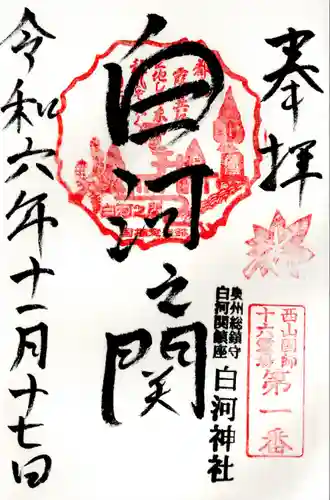 奉拝
白河之関
奥州総鎮守
白河関鎮座
白河神社
西山国師
十六霊場
第一番
白河之関
令和六年十一月十七日